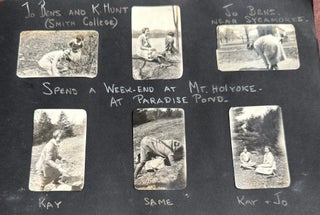 Jo Bens and K. Hunt
(Smith College)
Jo Bens
near Sycamores.
Spend a Week-end at Mt. Holyoke.
At Paradise Pond.
Kay
Same
Kay + Jo